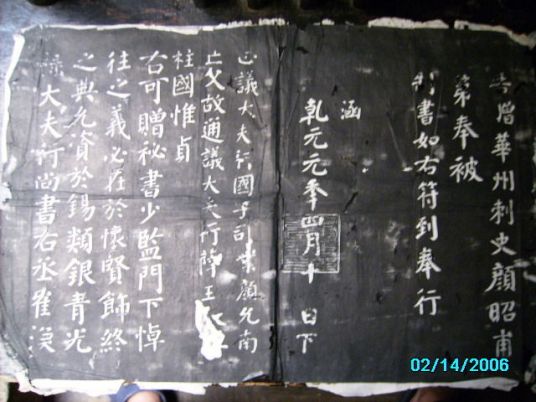 寺贈華州刺史顏昭甫
第奉被
制書如右符到奉行
涵
乾元元年四月十 日下
正議大夫行國子司業顏允南
亡父故通議大夫行薛王
柱國惟貞
右可贈祕書少監門下悼
往之義必在於懷賢飾終
之典允資於錫類銀青光
祿大夫行尚書右丞崔
02/14/2006